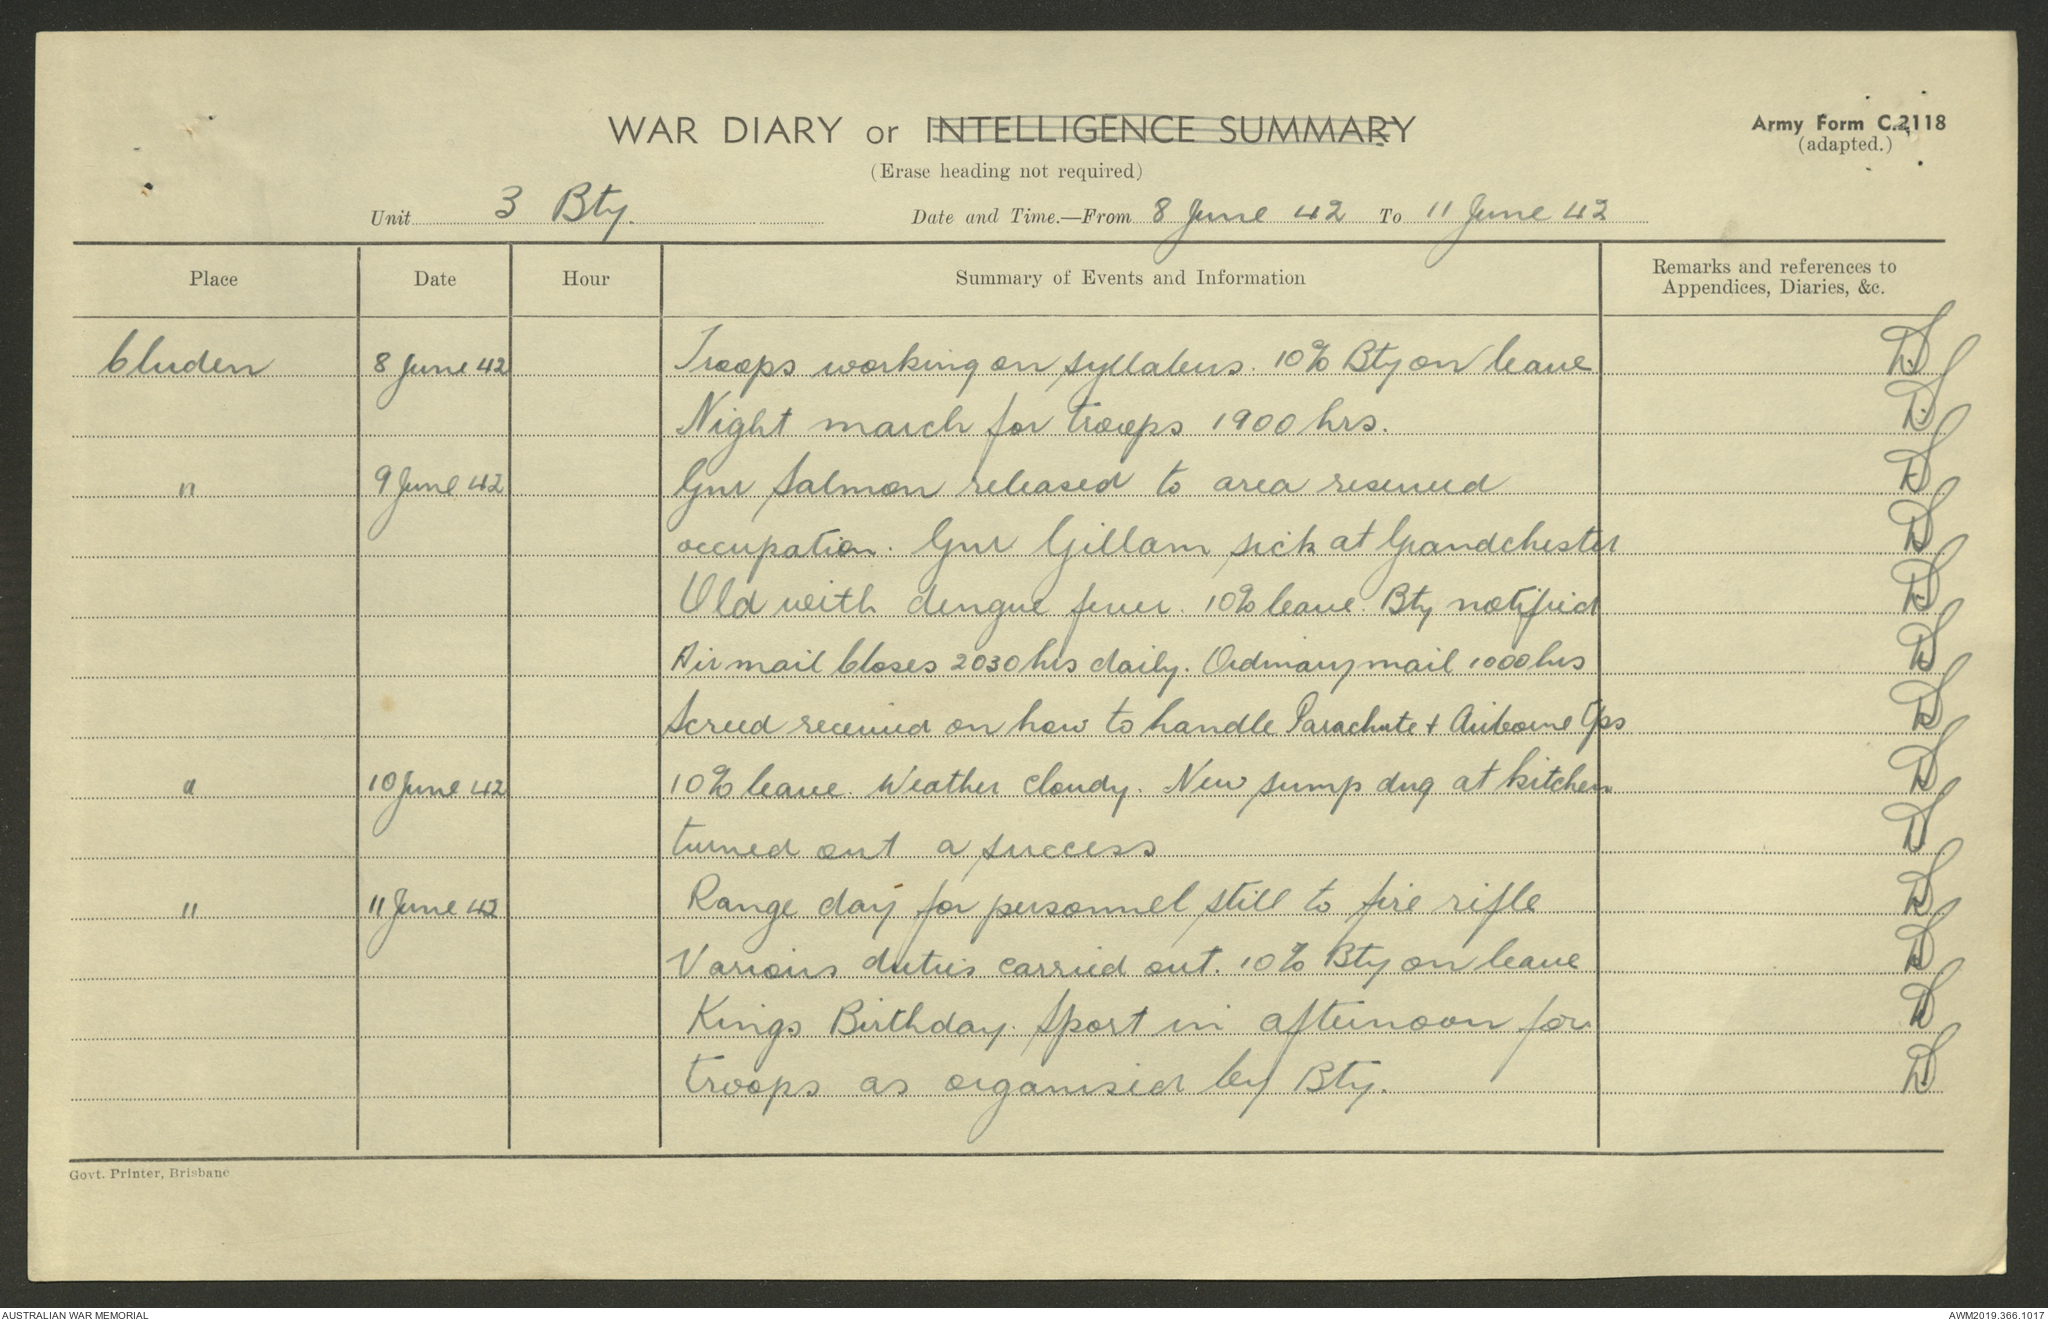 WAR DIARY or INTELLIGENCE SUMMARY
Army Form C.2118
(adapted.)
(Erase heading not required)
Unit 3 Bty. Date and Time.—From 8 June 42 To 11 June 42
Place Date Hour Summary of Events and Information Remarks and references to
Appendices, Diaries, &c.
Cluden 8 June 42 Troops working on syllabus. 10% Bty on leave
Night march for troops 1900 hrs.
" 9 June 42 Gnr Salmon released to area reserved
occupation. Gnr Gillam sick at Grandchester
Qld with dengue fever. 10% leave. Bty notified
Air mail closes 2030 hrs daily. Ordinary mail 1000 hrs
Screed received on how to handle Parachute + Airborne Tps
" 10 June 42 10% leave. Weather cloudy. New sump dug at kitchen
turned out a success
" 11 June 42 Range day for personnel still to fire rifle
Various duties carried out. 10% Bty on leave
Kings Birthday. Sport in afternoon for
troops as organised by Bty.
Govt. Printer, Brisbane
AUSTRALIAN WAR MEMORIAL
AWM2019.366.1017